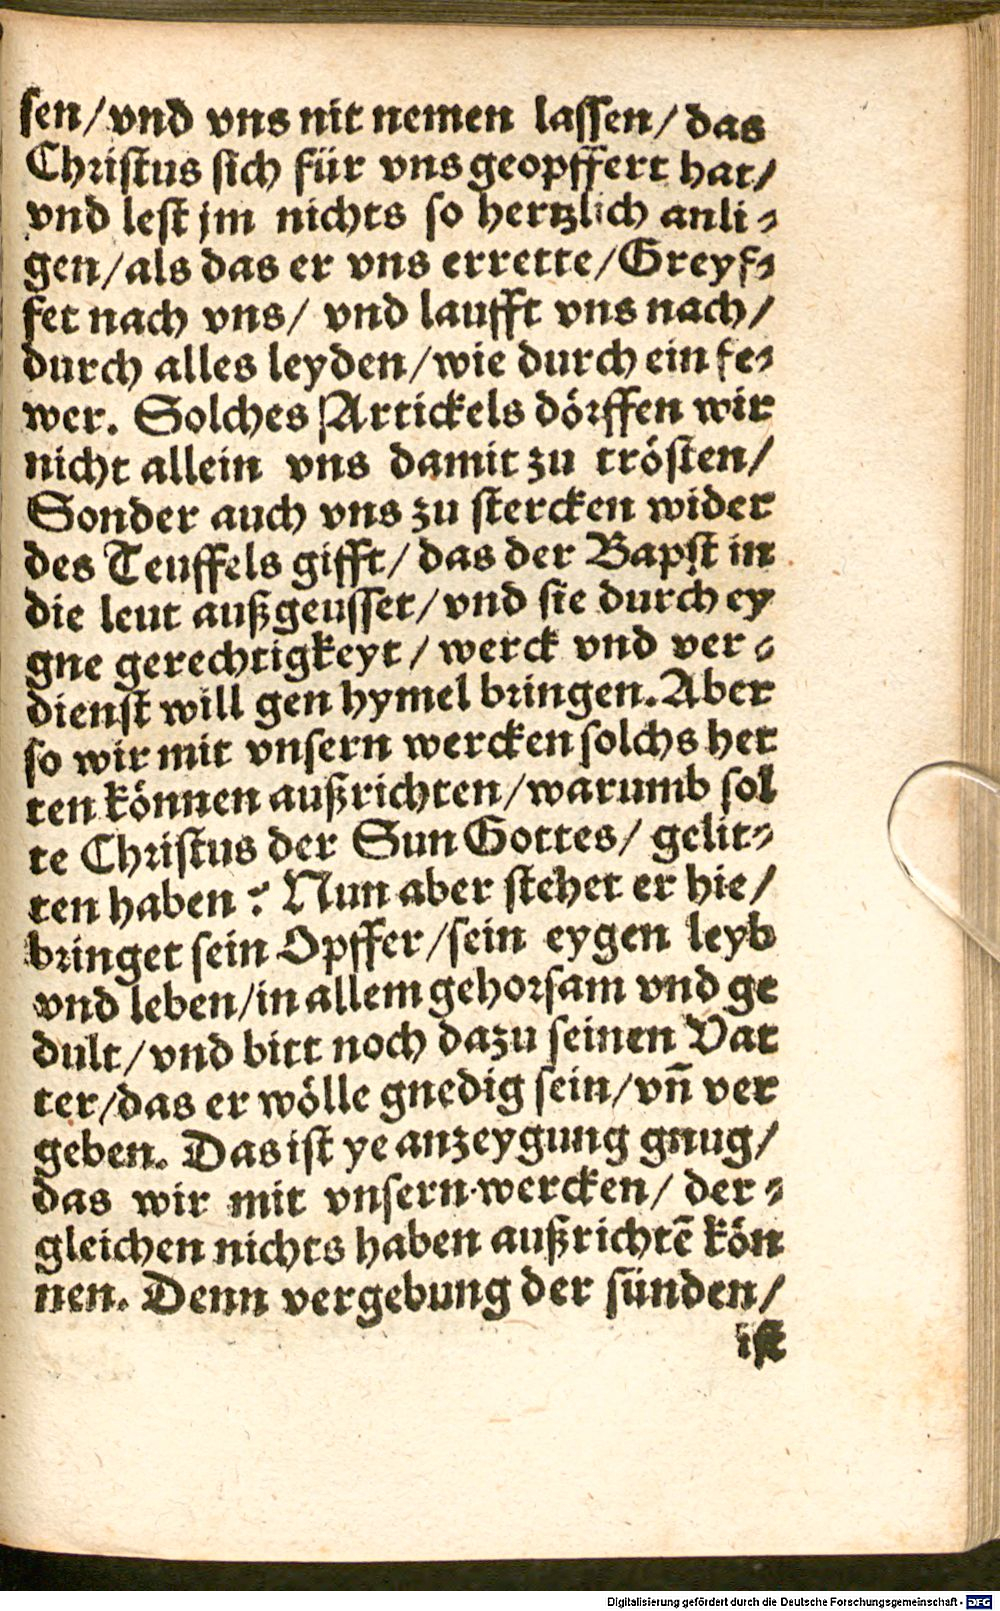 sen/vnd vns nit nemen lassen/das
Christus sich für vns geopffert hat/
vnd lest jm nichts so hertzlich anli⸗
gen/als das er vns errette/Greyf⸗
fet nach vns/ vnd laufft vns nach/
durch alles leyden/wie durch ein fe⸗
wer. Solches Artickels dörffen wir
nicht allein vns damit zu trösten/
Sonder auch vns zu stercken wider
des Teuffels gifft/ das der Bapst in
die leut außgeusset/vnd sie durch ey
gne gerechtigkeyt/ werck vnd ver⸗
dienst will gen hymel bringen. Aber
so wir mit vnsern wercken solchs het
ten können außrichten/warumb sol
te Christus der Sun Gottes/ gelit⸗
ten haben? Nun aber stehet er hie/
bringet sein Opffer/sein eygen leyb
vnd leben/in allem gehorsam vnd ge
dult/vnd bitt noch dazu seinen Vat
ter/das er wölle gnedig sein/vñ ver
geben. Das ist ye anzeygung gnug/
das wir mit vnsern wercken/ der⸗
gleichen nichts haben außrichtē kön
nen. Denn vergebung der sünden/
ist
Digitalisierung gefördert durch die Deutsche Forschungsgemeinschaft - DFG